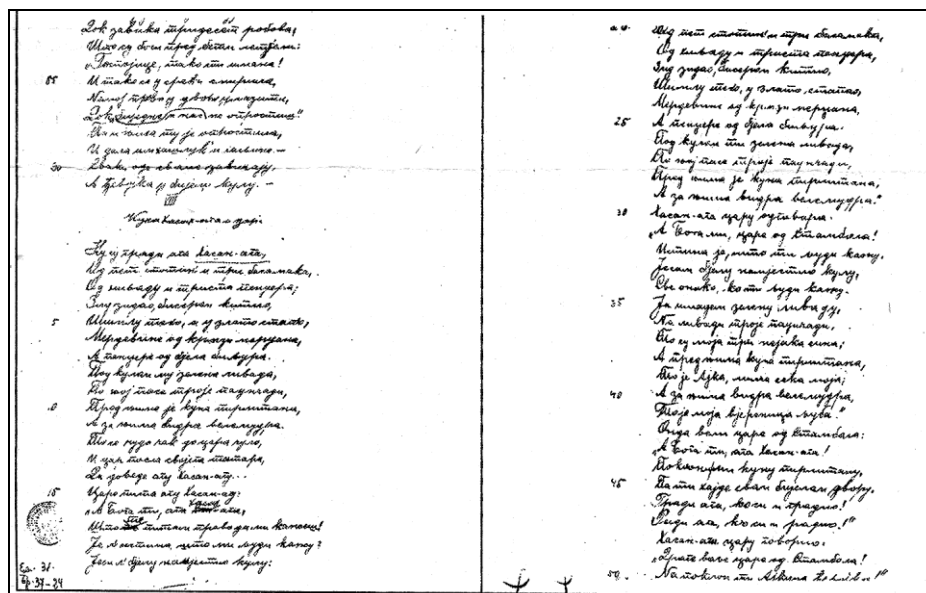 Док завика тридесет робова,
Што су боси пред
„Госпојице, тако ти имана!
85 И тако се у срећи
На твој прво у двору
Док не опростиш"
то је опростила,
И дала им
90
А Ђевојка у бијелу кулу. —
VIII
Кула Хасан-аге и цар.
Кулу гради ага Хасан-ага,
Од пет стотин' и три басамака,
Од и триста пенџера;
Зид зидао, бисером китио,
5 у злато
Мердевине од крџи мерџана,
А пенџере од бјела билура.
Под кулом му зелена ливада,
По њој пасе троје паунчади,
10 Пред њима је куна тириптана,
А за њима видра велемудра.
То се чудо чак до цара чуло,
И цар посла својега татара,
Да доведе агу Хасан-агу...
15 Царе пита агу Хасан-агу:
„А Бога ти, ага Хасан-ага,
Што те питам право да ми кажеш!
Је л' истина, што ми људи кажу?
Јеси л' бјелу намјестио кулу:
Ед. 31.
бр. 37-24
20. Од пет стотин' и три басамака,
Од и триста пенџера,
Зид зидао, бисером китио,
у злато
Мердевине од крџи мерџана,
25 А пенџере од бјела билура.
Под кулом ти зелена ливада,
По њој пасе троје паунчади,
Пред њима је куна тириптана,
А за њима видра велемудра."
30 Хасан-ага цару одговара:
„А Бога ми, царе од Стамбола!
Истина је, што ти људи кажу.
Јесам бјелу намјестио кулу,
Све онако, ко ти људи кажу.
35 Ја имадем зелену ливаду,
На ливади троје паунчади,
То су моја три нејака сина;
А пред њима куна тириптана,
То је Ајка, мила сека моја;
40 А за њима видра велемудра,
То је моја вјереница љуба."
Онда вели царе од Стамбола:
„А Бога ти, ага Хасан-ага!
Поклони ми куну тириптану,
45 Па ти хајде свом бијелом двору.
Гради ага, коси и гради!
Ради ага, коси и ради!"
Хасан-ага цару говорио:
„Драги царе од Стамбола!
50. На поклон ти